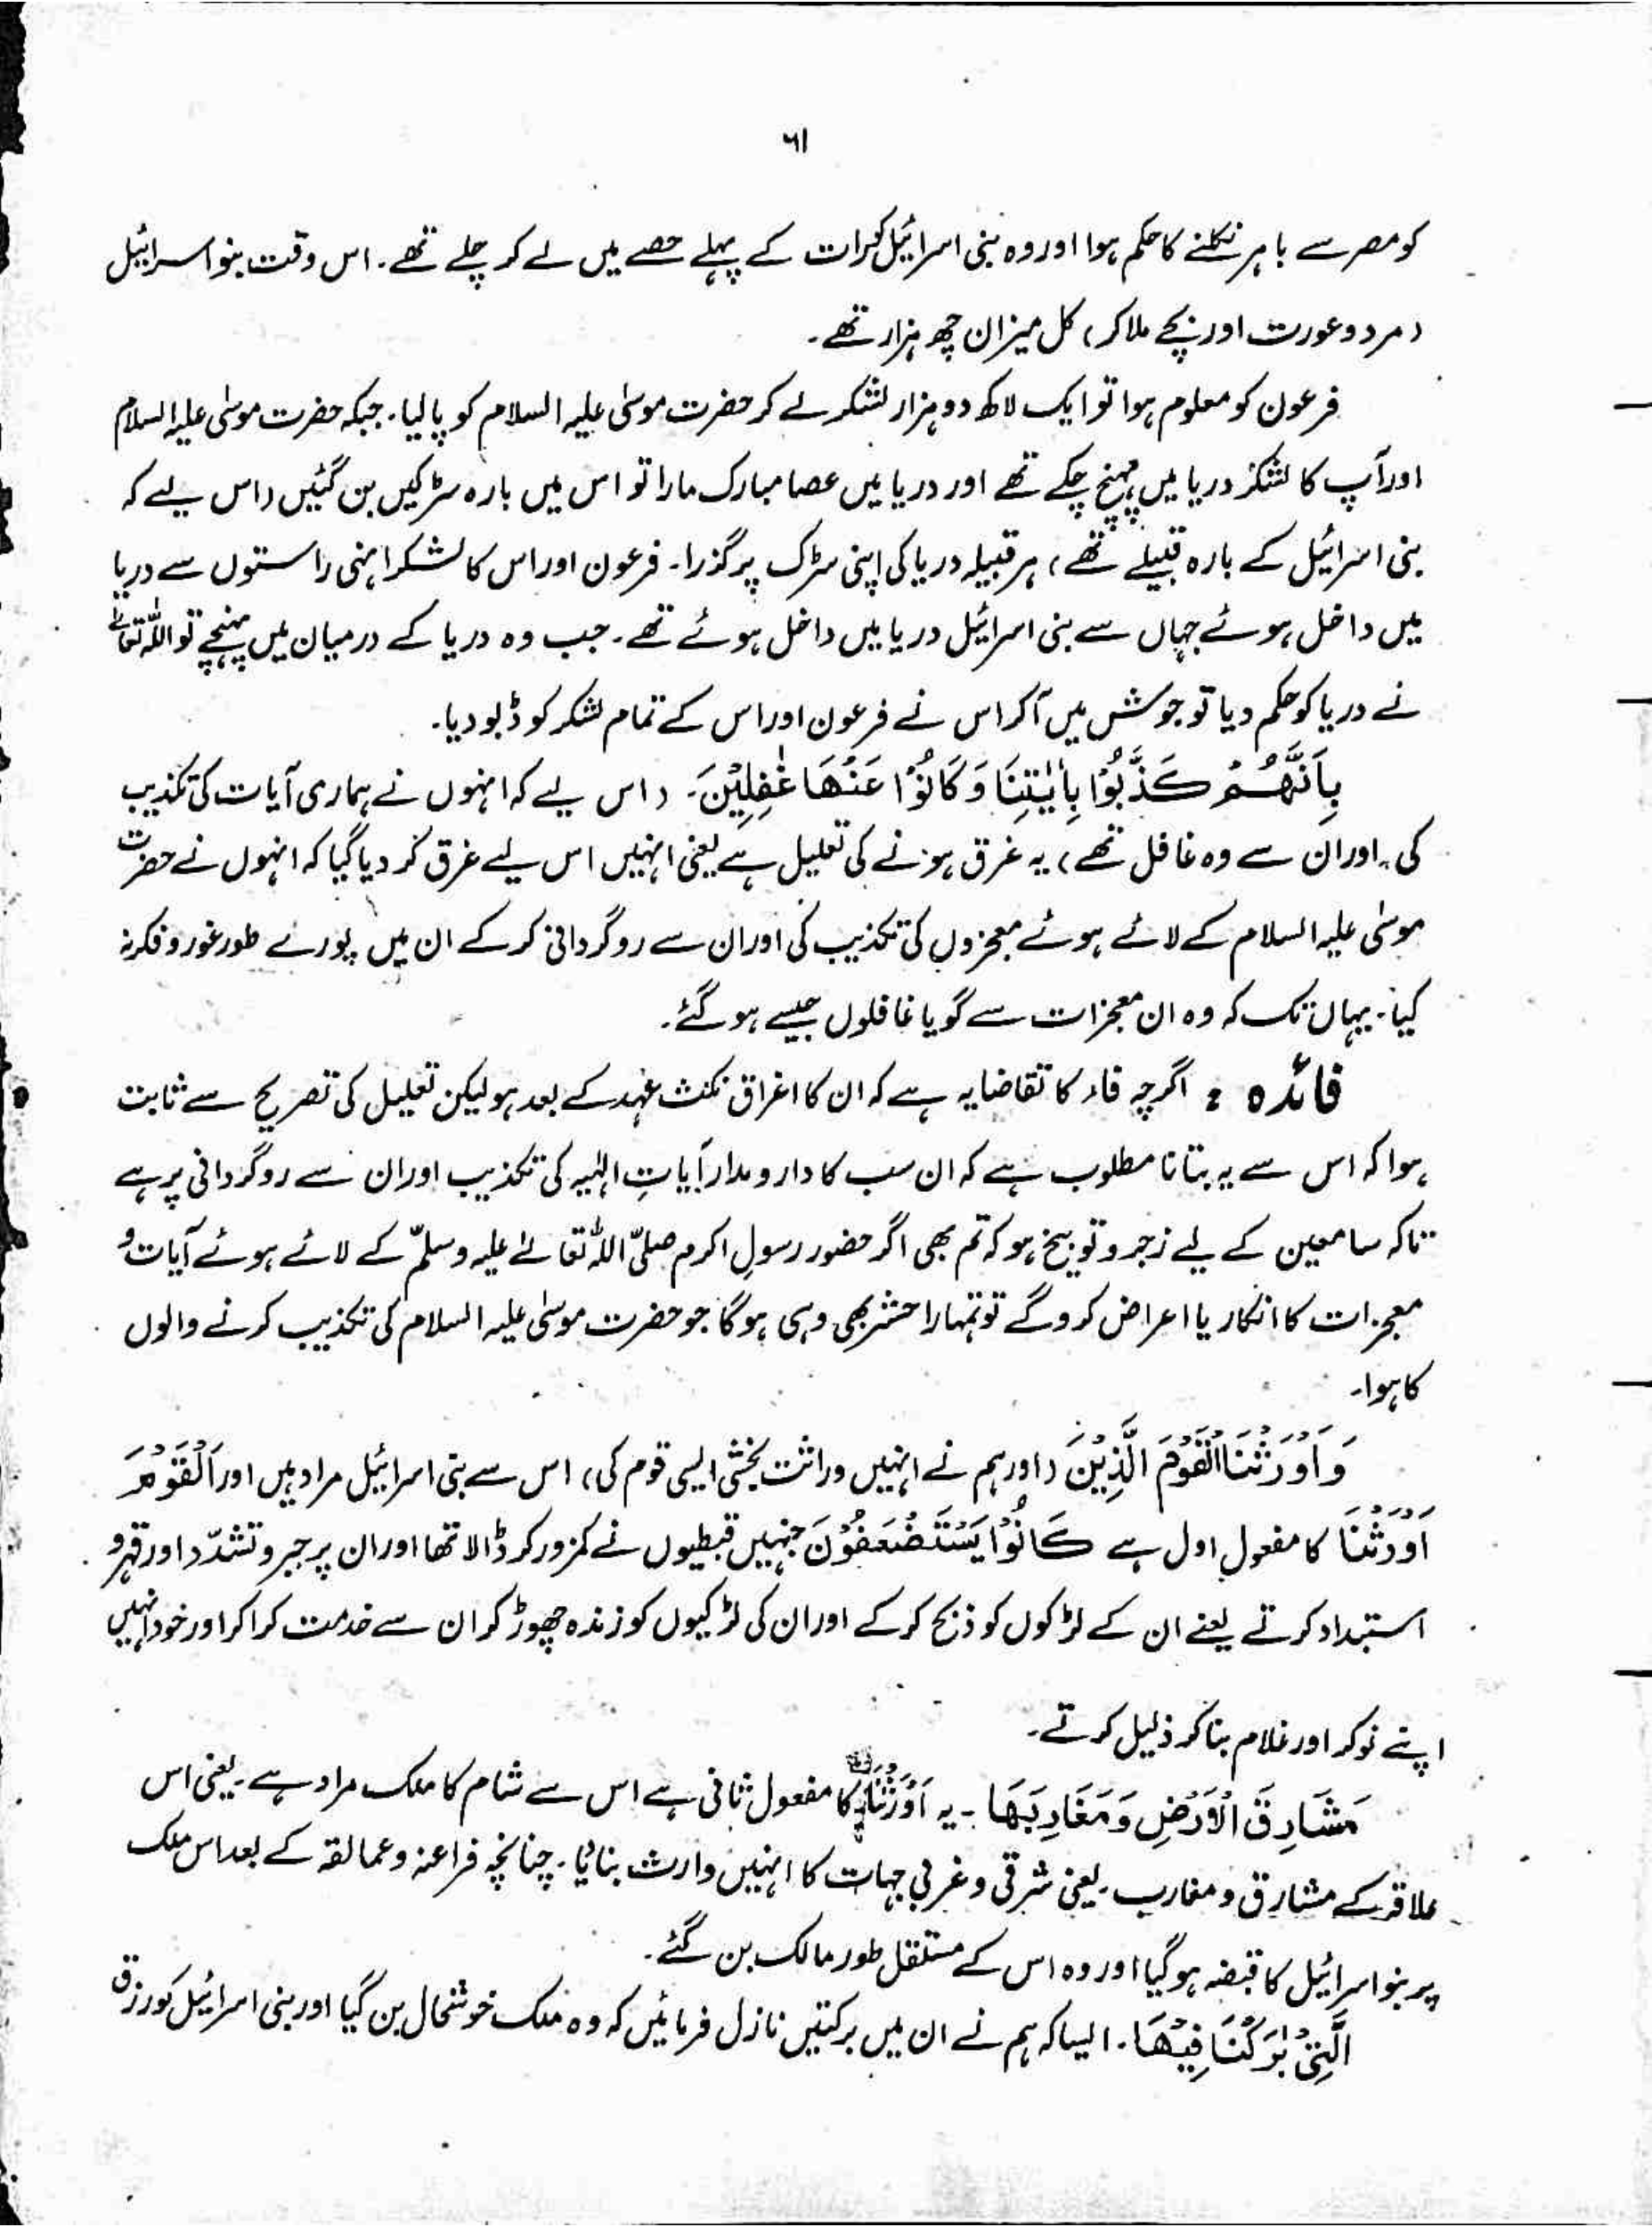 ۶۱
کو مصر سے باہر نکلنے کا حکم ہوا اور وہ بنی اسرائیل کو رات کے پہلے حصے میں لے کر چلے تھے۔ اس وقت بنو اسرائیل
(مرد و عورت اور بچے ملا کر) کل میزان چھ ہزار تھے۔
فرعون کو معلوم ہوا تو ایک لاکھ دو ہزار لشکر لے کر حضرت موسیٰ علیہ السلام کو پا لیا۔ جبکہ حضرت موسیٰ علیہ السلام
اور آپ کا لشکر دریا میں پہنچ چکے تھے اور دریا میں عصا مبارک مارا تو اس میں بارہ سڑکیں بن گئیں (اس لیے کہ
بنی اسرائیل کے بارہ قبیلے تھے) ہر قبیلہ دریا کی اپنی سڑک پر گذرا۔ فرعون اور اس کا لشکر انہی راستوں سے دریا
میں داخل ہوئے جہاں سے بنی اسرائیل دریا میں داخل ہوئے تھے۔ جب وہ دریا کے درمیان میں پہنچے تو اللہ تعالیٰ
نے دریا کو حکم دیا تو جوش میں آکر اس نے فرعون اور اس کے تمام لشکر کو ڈبو دیا۔
بِاَنَّهُمْ كَذَّبُوْا بِاٰيٰتِنَا وَكَانُوْا عَنْهَا غٰفِلِيْنَ۔ (اس لیے کہ انہوں نے ہماری آیات کی تکذیب
کی اور ان سے وہ غافل تھے) یہ غرق ہونے کی تعلیل ہے یعنی انہیں اس لیے غرق کر دیا گیا کہ انہوں نے حضرت
موسیٰ علیہ السلام کے لائے ہوئے معجزوں کی تکذیب کی اور ان سے روگردانی کر کے ان میں پورے طور غور و فکر نہ
کیا۔ یہاں تک کہ وہ ان معجزات سے گویا غافلوں جیسے ہو گئے۔
فائدہ : اگرچہ فاء کا تقاضا یہ ہے کہ ان کا اغراق نکث عہد کے بعد ہو لیکن تعلیل کی تصریح سے ثابت
ہوا کہ اس سے یہ بتانا مطلوب ہے کہ ان سب کا دار و مدار آیاتِ الٰہیہ کی تکذیب اور ان سے روگردانی پر ہے
تاکہ سامعین کے لیے زجر و توبیخ ہو کہ تم بھی اگر حضور رسولِ اکرم صلّی اللہ تعالیٰ علیہ وسلّم کے لائے ہوئے آیات و
معجزات کا انکار یا اعراض کرو گے تو تمہارا حشر بھی وہی ہو گا جو حضرت موسیٰ علیہ السلام کی تکذیب کرنے والوں
کا ہوا۔
وَاَوْرَثْنَا الْقَوْمَ الَّذِيْنَ (اور ہم نے انہیں وراثت بخشی ایسی قوم کی) اس سے بنی اسرائیل مراد ہیں اور اَلْقَوْمَ
اَوْرَثْنَا کا مفعول اول ہے كَانُوْا يُسْتَضْعَفُوْنَ جنہیں قبطیوں نے کمزور کر ڈالا تھا اور ان پر جبر و تشدّد اور قہر و
استبداد کرتے یعنے ان کے لڑکوں کو ذبح کر کے اور ان کی لڑکیوں کو زندہ چھوڑ کر ان سے خدمت کرا کر اور خود انہیں
اپنے نوکر اور غلام بنا کر ذلیل کرتے۔
مَشَارِقَ الْاَرْضِ وَمَغَارِبَهَا ۔ یہ اَوْرَثْنَا کا مفعول ثانی ہے اس سے شام کا ملک مراد ہے۔ یعنی اس
علاقہ کے مشارق و مغارب۔ یعنی شرقی و غربی جہات کا انہیں وارث بنایا۔ چنانچہ فراعنہ و عمالقہ کے بعد اس ملک
پر بنو اسرائیل کا قبضہ ہو گیا اور وہ اس کے مستقل طور مالک بن گئے۔
الَّتِيْ بٰرَكْنَا فِيْهَا۔ ایسا کہ ہم نے ان میں برکتیں نازل فرمائیں کہ وہ ملک خوشحال بن گیا اور بنی اسرائیل کو رزق